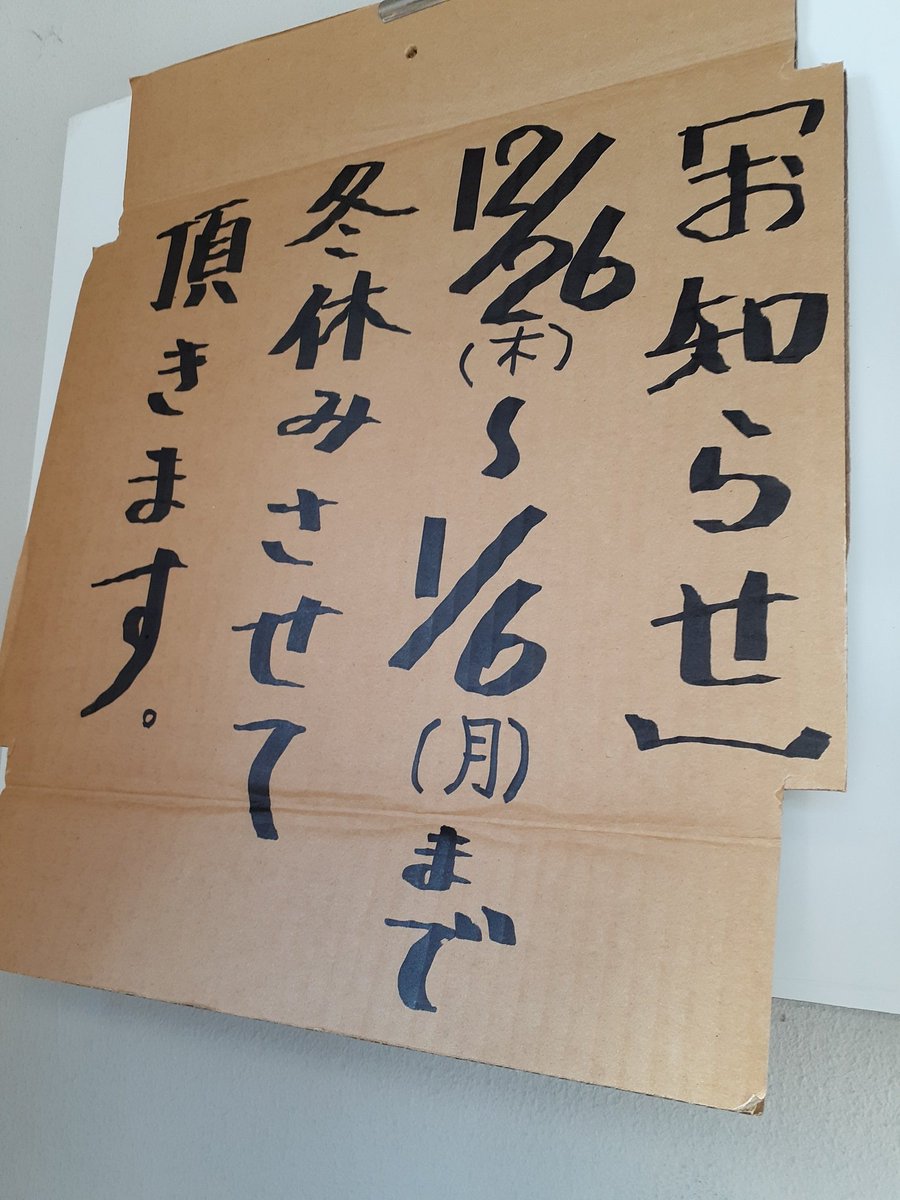 [お知らせ]
12/26(木)〜1/6(月)まで
冬休みさせて
頂きます。